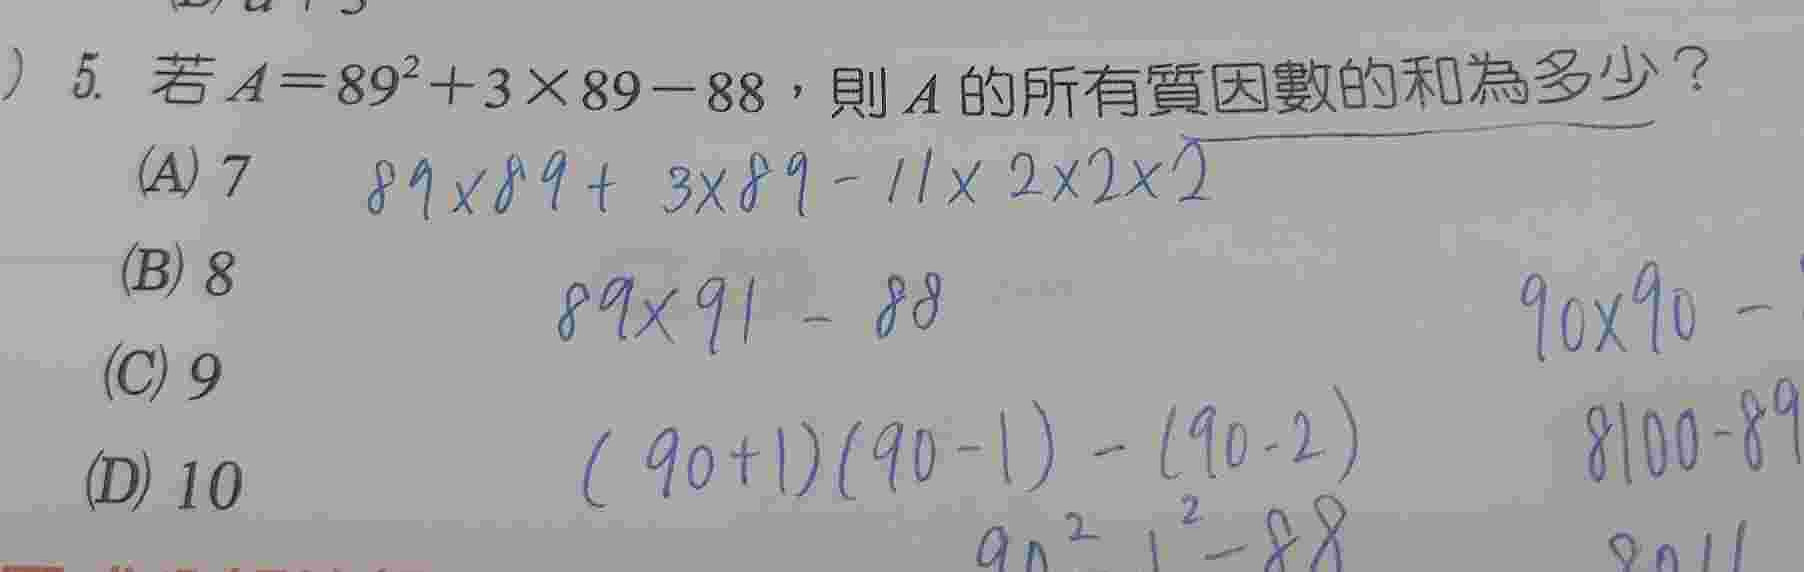 ) 5. 若 A=89²+3×89-88，則 A 的所有質因數的和為多少？
(A) 7
89×89+ 3×89-11×2×2×2
(B) 8
89×91 - 88
90×90 -
(C) 9
(90+1)(90-1)-(90-2)
8100-89
(D) 10
90²-1²-88
8011